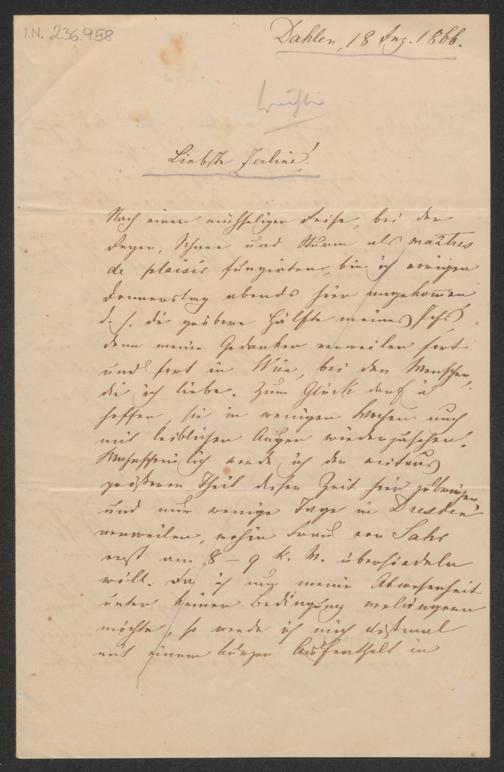 I.N. 236.958
Dahlen, 18 Dez. 1866.
Liebste Julie!
Nach einer mühseligen Reise, bei der
Regen, Schnee und Sturm als maîtres
de plaisir fungirten, bin ich vorigen
Donnerstag abends hier angekommen
d. h. die gröbere Hälfte meines Ichs,
denn meine Gedanken verweilen fort
und fort in Wien, bei den Menschen,
die ich liebe. Zum Glück darf ich
hoffen, sie in wenigen Wochen auch
mit leiblichen Augen wiederzusehen.
Wahrscheinlich werde ich den weitaus
größeren Theil dieser Zeit hier zubringen
und nur wenige Tage in Dresden
verweilen, wohin Frau von Sahr
erst am 8 – 9 k. M. übersiedeln
will. Da ich nun meine Abwesenheit
unter keiner Bedingung verlängern
möchte, so werde ich mich dießmal
mit einem kurzen Aufenthalt in